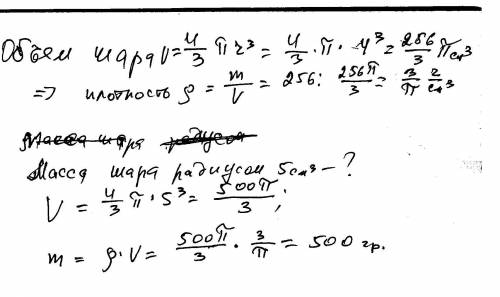 Объем шара V = 4/3 π r³ = 4/3 · π · 4³ = 256/3 π см³
=> плотность ρ = m/V = 256 : 256π/3 = 3/π г/см³
Масса шара радиусом
Масса шара радиусом 5 см³ - ?
V = 4/3 π · 5³ = 500π/3 ;
m = ρ · V = 500π/3 · 3/π = 500 гр.